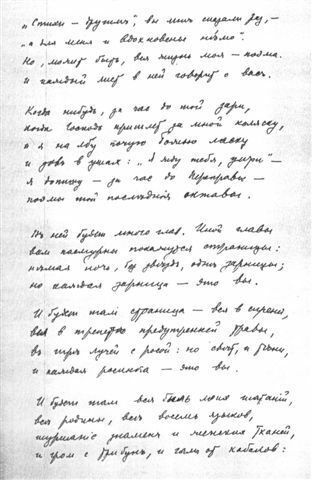 „Стихи — другимъ", вы мнѣ сказали разъ, —
„а для меня и вдохновенье нѣмо".
Но, можетъ быть, вся жизнь моя — поэма.
и каждый листъ в ней говоритъ о васъ.
Когда нибудь, за часъ до той зари,
когда Господь пришлетъ за мной коляску,
и я на лбу почую божью ласку
и зовъ в ушахъ: „Я жду тебя, умри" —
я допишу — за часъ до переправы —
поэмы той послѣднія октавы.
Въ ней будетъ много главъ. Иной главы
вам пасмурны покажутся страницы:
нѣмая ночь, безъ звѣздъ, однѣ зарницы;
но каждая зарница — это вы.
И будетъ тамъ страница — вся в сирени,
вся въ трепетѣ предутренней травы,
въ игрѣ лучей с росой: но свѣтъ, и тѣни,
и каждая росинка — это вы.
И будетъ там вся быль моихъ шатаній,
вся родины, всѣхъ восемь языковъ,
шуршанье знаменъ и женскихъ тканей,
и громъ с трибунъ, и гамъ от кабаковъ: